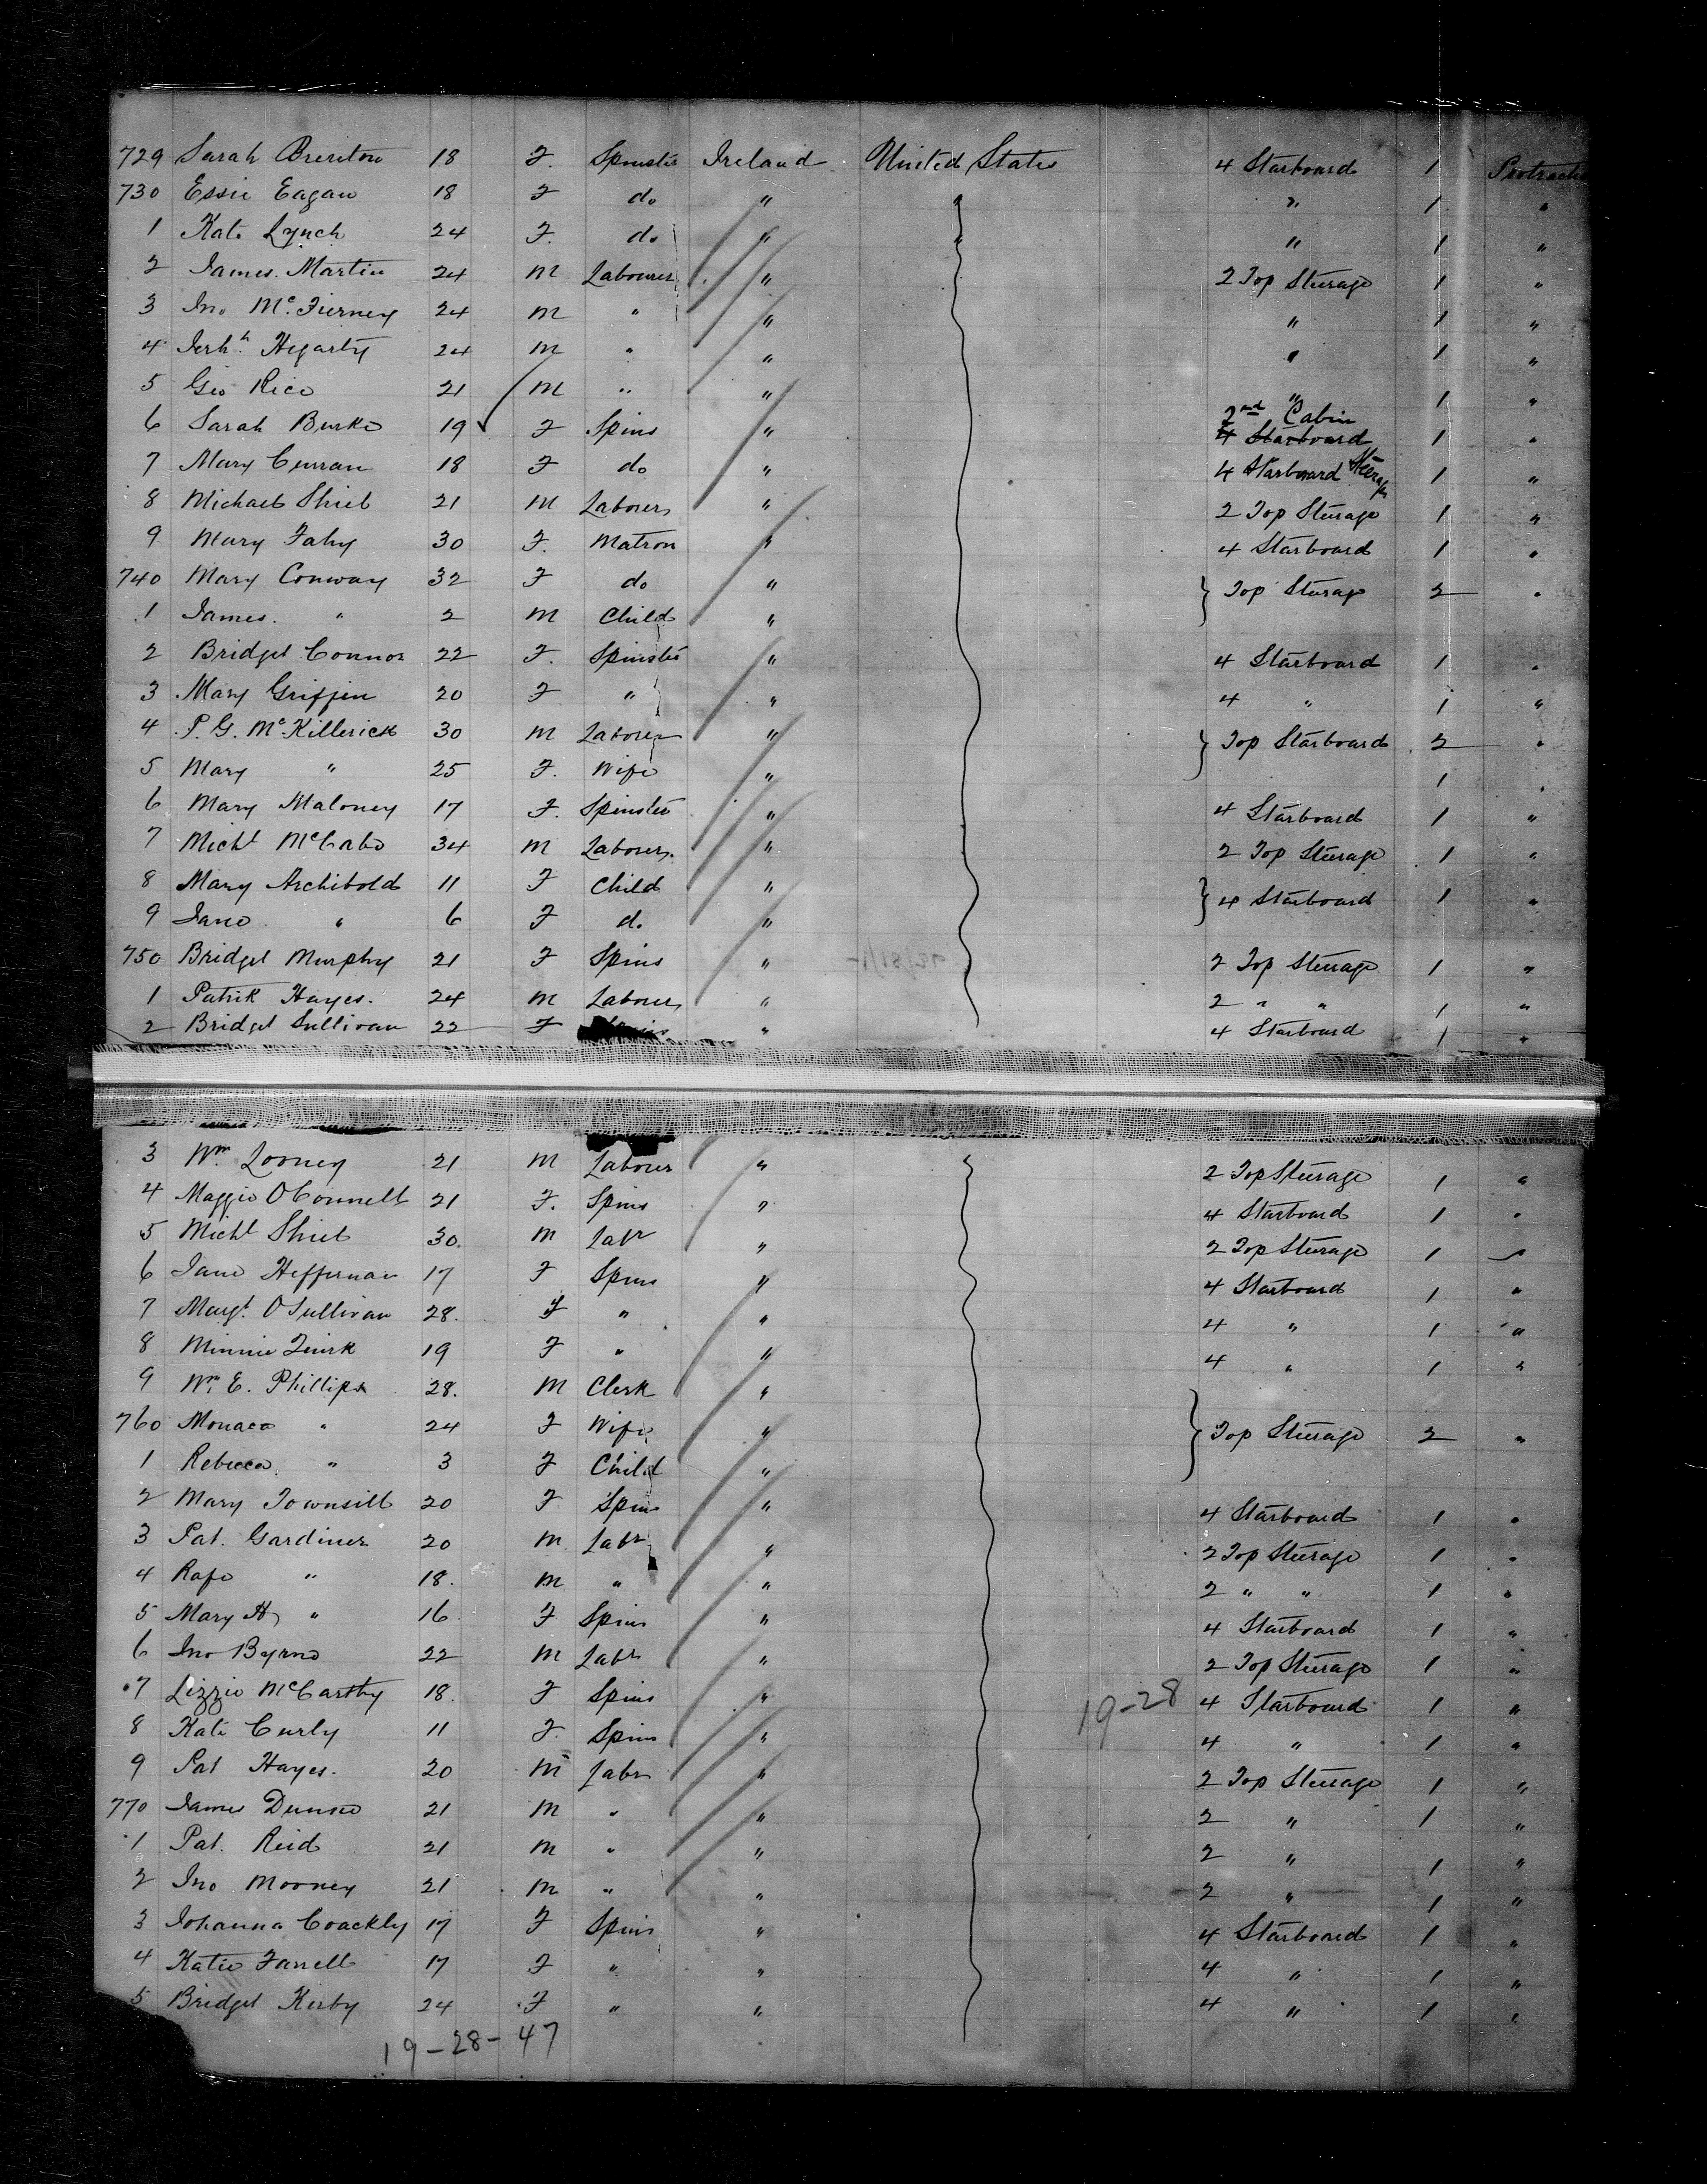 729 Sarah Brereton 18 F. Spinster Ireland United States 4 Starboard 1
730 Essie Eagan 18 F do " " " 1 "
1 Kate Lynch 24 F. do " " " 1 "
2 James Martin 24 M Labourer " 2 Top Steerage 1 "
3 Jno McTierney 24 M " " " 1 "
4 Jerh. Hegarty 24 M " " " 1 "
5 Geo Rice 21 M " " " 1 "
6 Sarah Burke 19 F Spins " 2nd Cabin 4 Starboard 1 "
7 Mary Curran 18 F do " 4 Starboard Steerage 1 "
8 Michael Shiel 21 M Labourer " 2 Top Steerage 1 "
9 Mary Fahy 30 F. Matron " 4 Starboard 1 "
740 Mary Conway 32 F do " } Top Steerage 2 "
1 James " 2 M Child "
2 Bridget Connor 22 F. Spinster " 4 Starboard 1 "
3 Mary Griffin 20 F " " 4 " 1 "
4 P. G. McKillerick 30 M Laborer " } Top Starboard 2 "
5 Mary " 25 F. Wife " 1 "
6 Mary Maloney 17 F. Spinster " 4 Starboard 1 "
7 Michl McCabe 34 M Laborer " 2 Top Steerage 1 "
8 Mary Archibold 11 F Child " } 4 Starboard 1 "
9 Jane " 6 F do "
750 Bridget Murphy 21 F Spins " 2 Top Steerage 1 "
1 Patrik Hayes. 24 M Labourer " 2 " " 1 "
2 Bridget Sullivan 22 F " 4 Starboard 1 "
3 Wm. Looney 21 M Labourer " 2 Top Steerage 1 "
4 Maggie OConnell 21 F. Spins " 4 Starboard 1 "
5 Michl Shiel 30. M Labr " 2 Top Steerage 1 "
6 Jane Heffernan 17 F Spins " 4 Starboard 1 "
7 Margt. OSullivan 28. F " " 4 " 1 "
8 Minnie Quirk 19 F " " 4 " 1 "
9 Wm. E. Phillips 28. M Clerk "
760 Monaca " 24 F Wife " } Top Steerage 2 "
1 Rebecca " 3 F Child "
2 Mary Townsill 20 F Spins " 4 Starboard 1 "
3 Pat. Gardiner 20 M Labr " 2 Top Steerage 1 "
4 Rafe " 18. M " " 2 " " 1 "
5 Mary H " 16 F Spins " 4 Starboard 1 "
6 Jno Byrne 22 M Labr " 2 Top Steerage 1 "
7 Lizzie McCarthy 18. F Spins " 19-28 4 Starboard 1 "
8 Kate Curly 11 F. Spins " 4 " 1 "
9 Pat Hayes. 20 M Labr " 2 Top Steerage 1 "
770 James Dunne 21 M " " 2 " 1 "
1 Pat. Reid 21 M " " 2 " 1 "
2 Jno Mooney 21 M " " 2 " 1 "
3 Johanna Coackly 17 F Spins " 4 Starboard 1 "
4 Katie Farrell 17 F " " 4 " 1 "
5 Bridget Kirby 24 F " " 4 " 1 "
19-28-47